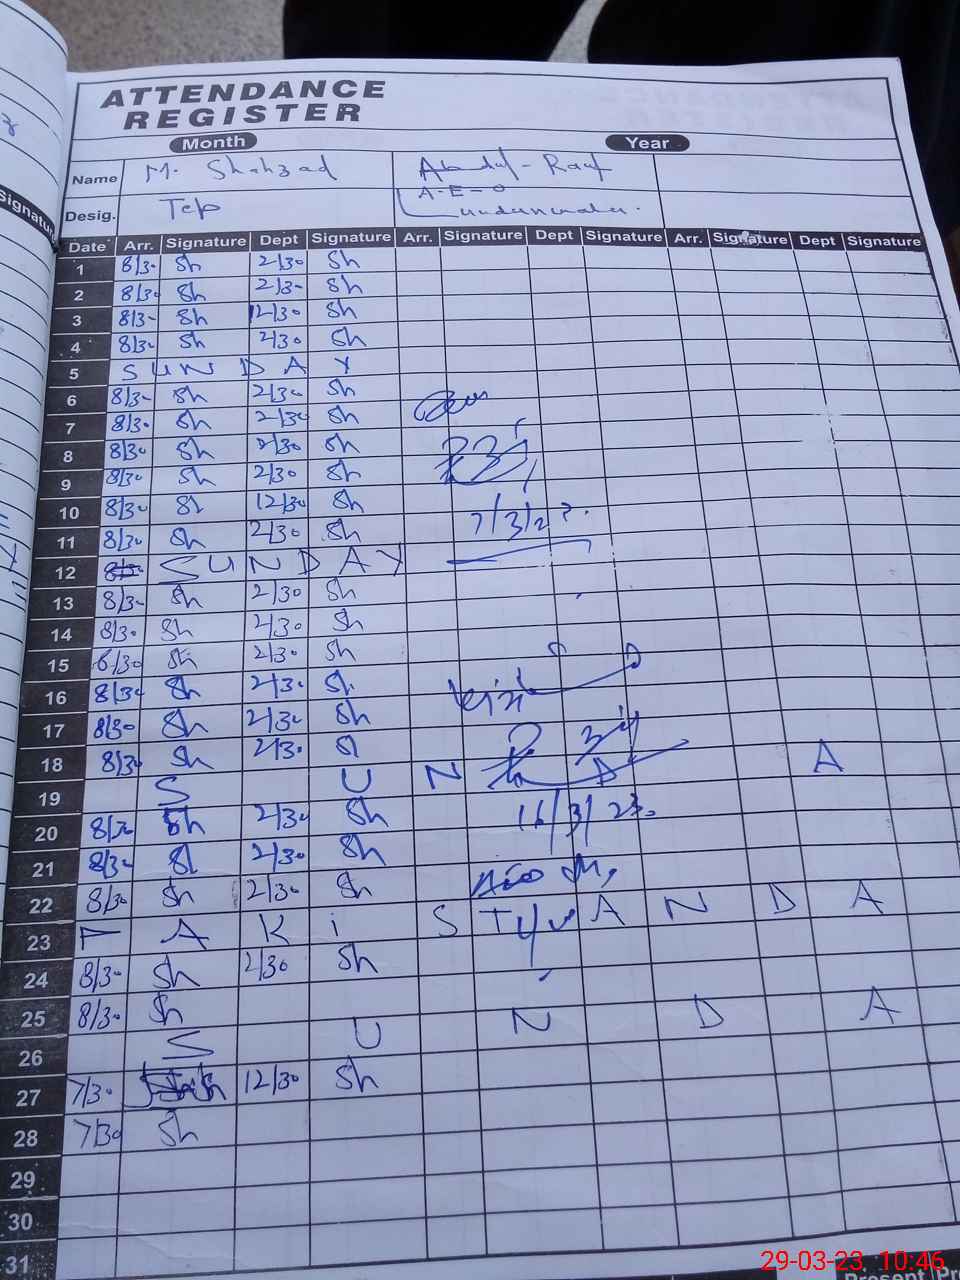 ATTENDANCE
REGISTER
Month Year
Name M. Shahzad Abdul-Rauf
Desig. A-E-O
Signature
Date Arr. Signature Dept Signature Arr. Signature Dept Signature Arr. Signature Dept Signature
1 8/30 Sh 2/30 Sh
2 8/30 Sh 2/30 Sh
3 8/30 Sh 12/30 Sh
4 8/30 Sh 2/30 Sh
5 S U N D A Y
6 8/30 Sh 2/30 Sh
7 8/30 Sh 2/30 Sh
8 8/30 Sh 2/30 Sh
9 8/30 Sh 2/30 Sh
10 8/30 Sh 12/30 Sh 7/3/23.
11 8/30 Sh 2/30 Sh
12 S U N D A Y
13 8/30 Sh 2/30 Sh
14 8/30 Sh 2/30 Sh
15 8/30 Sh 2/30 Sh
16 8/30 Sh 2/30 Sh
17 8/30 Sh 2/30 Sh
18 8/30 Sh 2/30 Sh
19 S U N D A
20 8/30 Sh 2/30 Sh 16/3/23.
21 8/30 Sh 2/30 Sh
22 8/30 Sh 2/30 Sh
23 P A K i S T A N D A
24 8/30 Sh 2/30 Sh
25 8/30 Sh
26 S U N D A
27 7/30 Sh 12/30 Sh
28 7/30 Sh
29
30
31
29-03-23 10:46